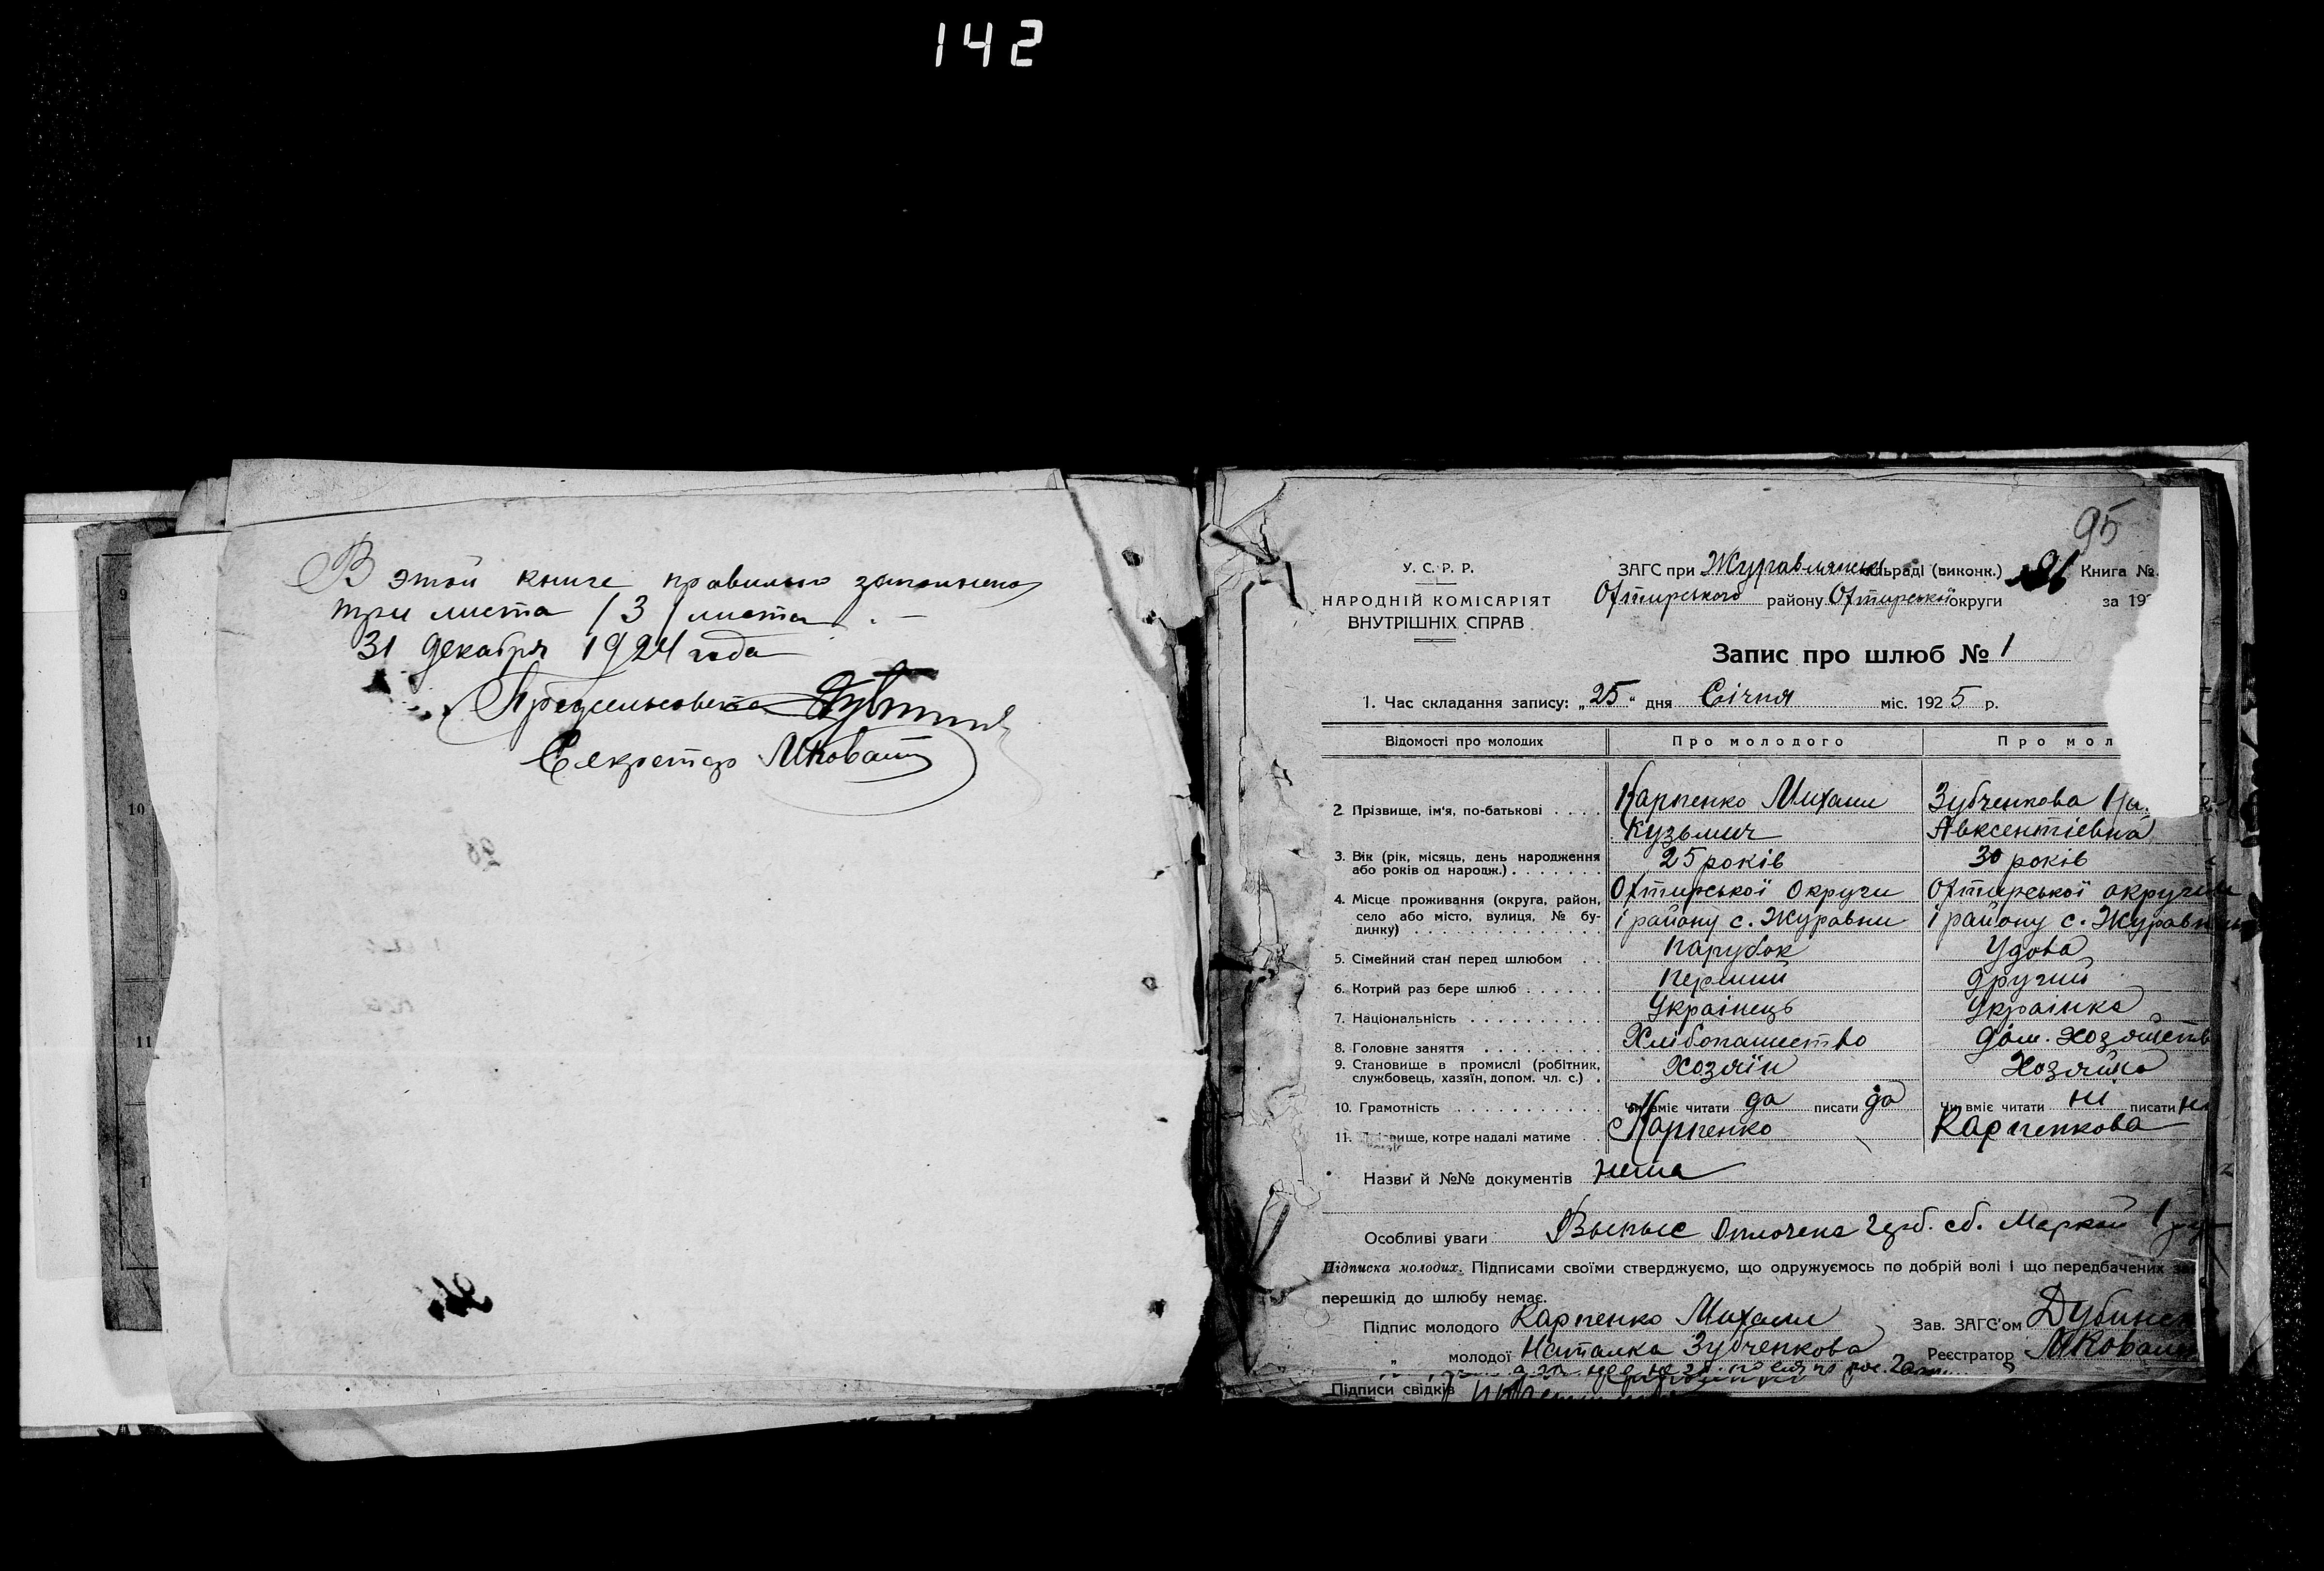 142
В этой книге правильно заполнено
три листа / 3 / листа. –
31 декабря 1924 года
Предсельсовета
Секретарь МКоваль
9
10
11
1
95
У. С. Р. Р.
НАРОДНІЙ КОМІСАРІЯТ
ВНУТРІШНІХ СПРАВ
ЗАГС при Журавлянськ льраді (виконк.) 91 Книга №
Охтирського району Охтирської округи за 192
Запис про шлюб № 1
1. Час складання запису: „25“ дня Січня міс. 1925 р.
Відомості про молодих Про молодого Про мол
2. Прізвище, ім'я, по-батькові Карпенко Михаил Зубченкова На
Кузьмич Авксентіевна
3. Вік (рік, місяць, день народження або років од народж.) 25 років 30 років
4. Місце проживання (округа, район, Охтирської Округи Охтирської округи
село або місто, вулиця, № бу- 1 району с. Журавни 1 району с. Журавн
динку)
5. Сімейний стан перед шлюбом Парубок Удова
6. Котрий раз бере шлюб Перший другий
7. Національність Украінець Украінка
8. Головне заняття Хлібопашество дом. хозяйств
9. Становище в промислі (робітник, службовець, хазяїн, допом. чл. с.) Хозяїн Хозяйка
10. Грамотність Чи вміє читати да писати да Чи вміє читати ні писати ні
11. вище, котре надалі матиме Карпенко Карпенкова
Назви й №№ документів нема
Особливі уваги Выпыс Оплочена герб. сб. Маркой 1
Підписка молодих. Підписами своїми стверджуємо, що одружуємось по добрій волі і що передбачених за
перешкід до шлюбу немає.
Підпис молодого Карпенко Михаил Зав. ЗАГС'ом Дубинс
„ молодої Наталка Зубченкова Реєстратор МКовал
Підписи свідків